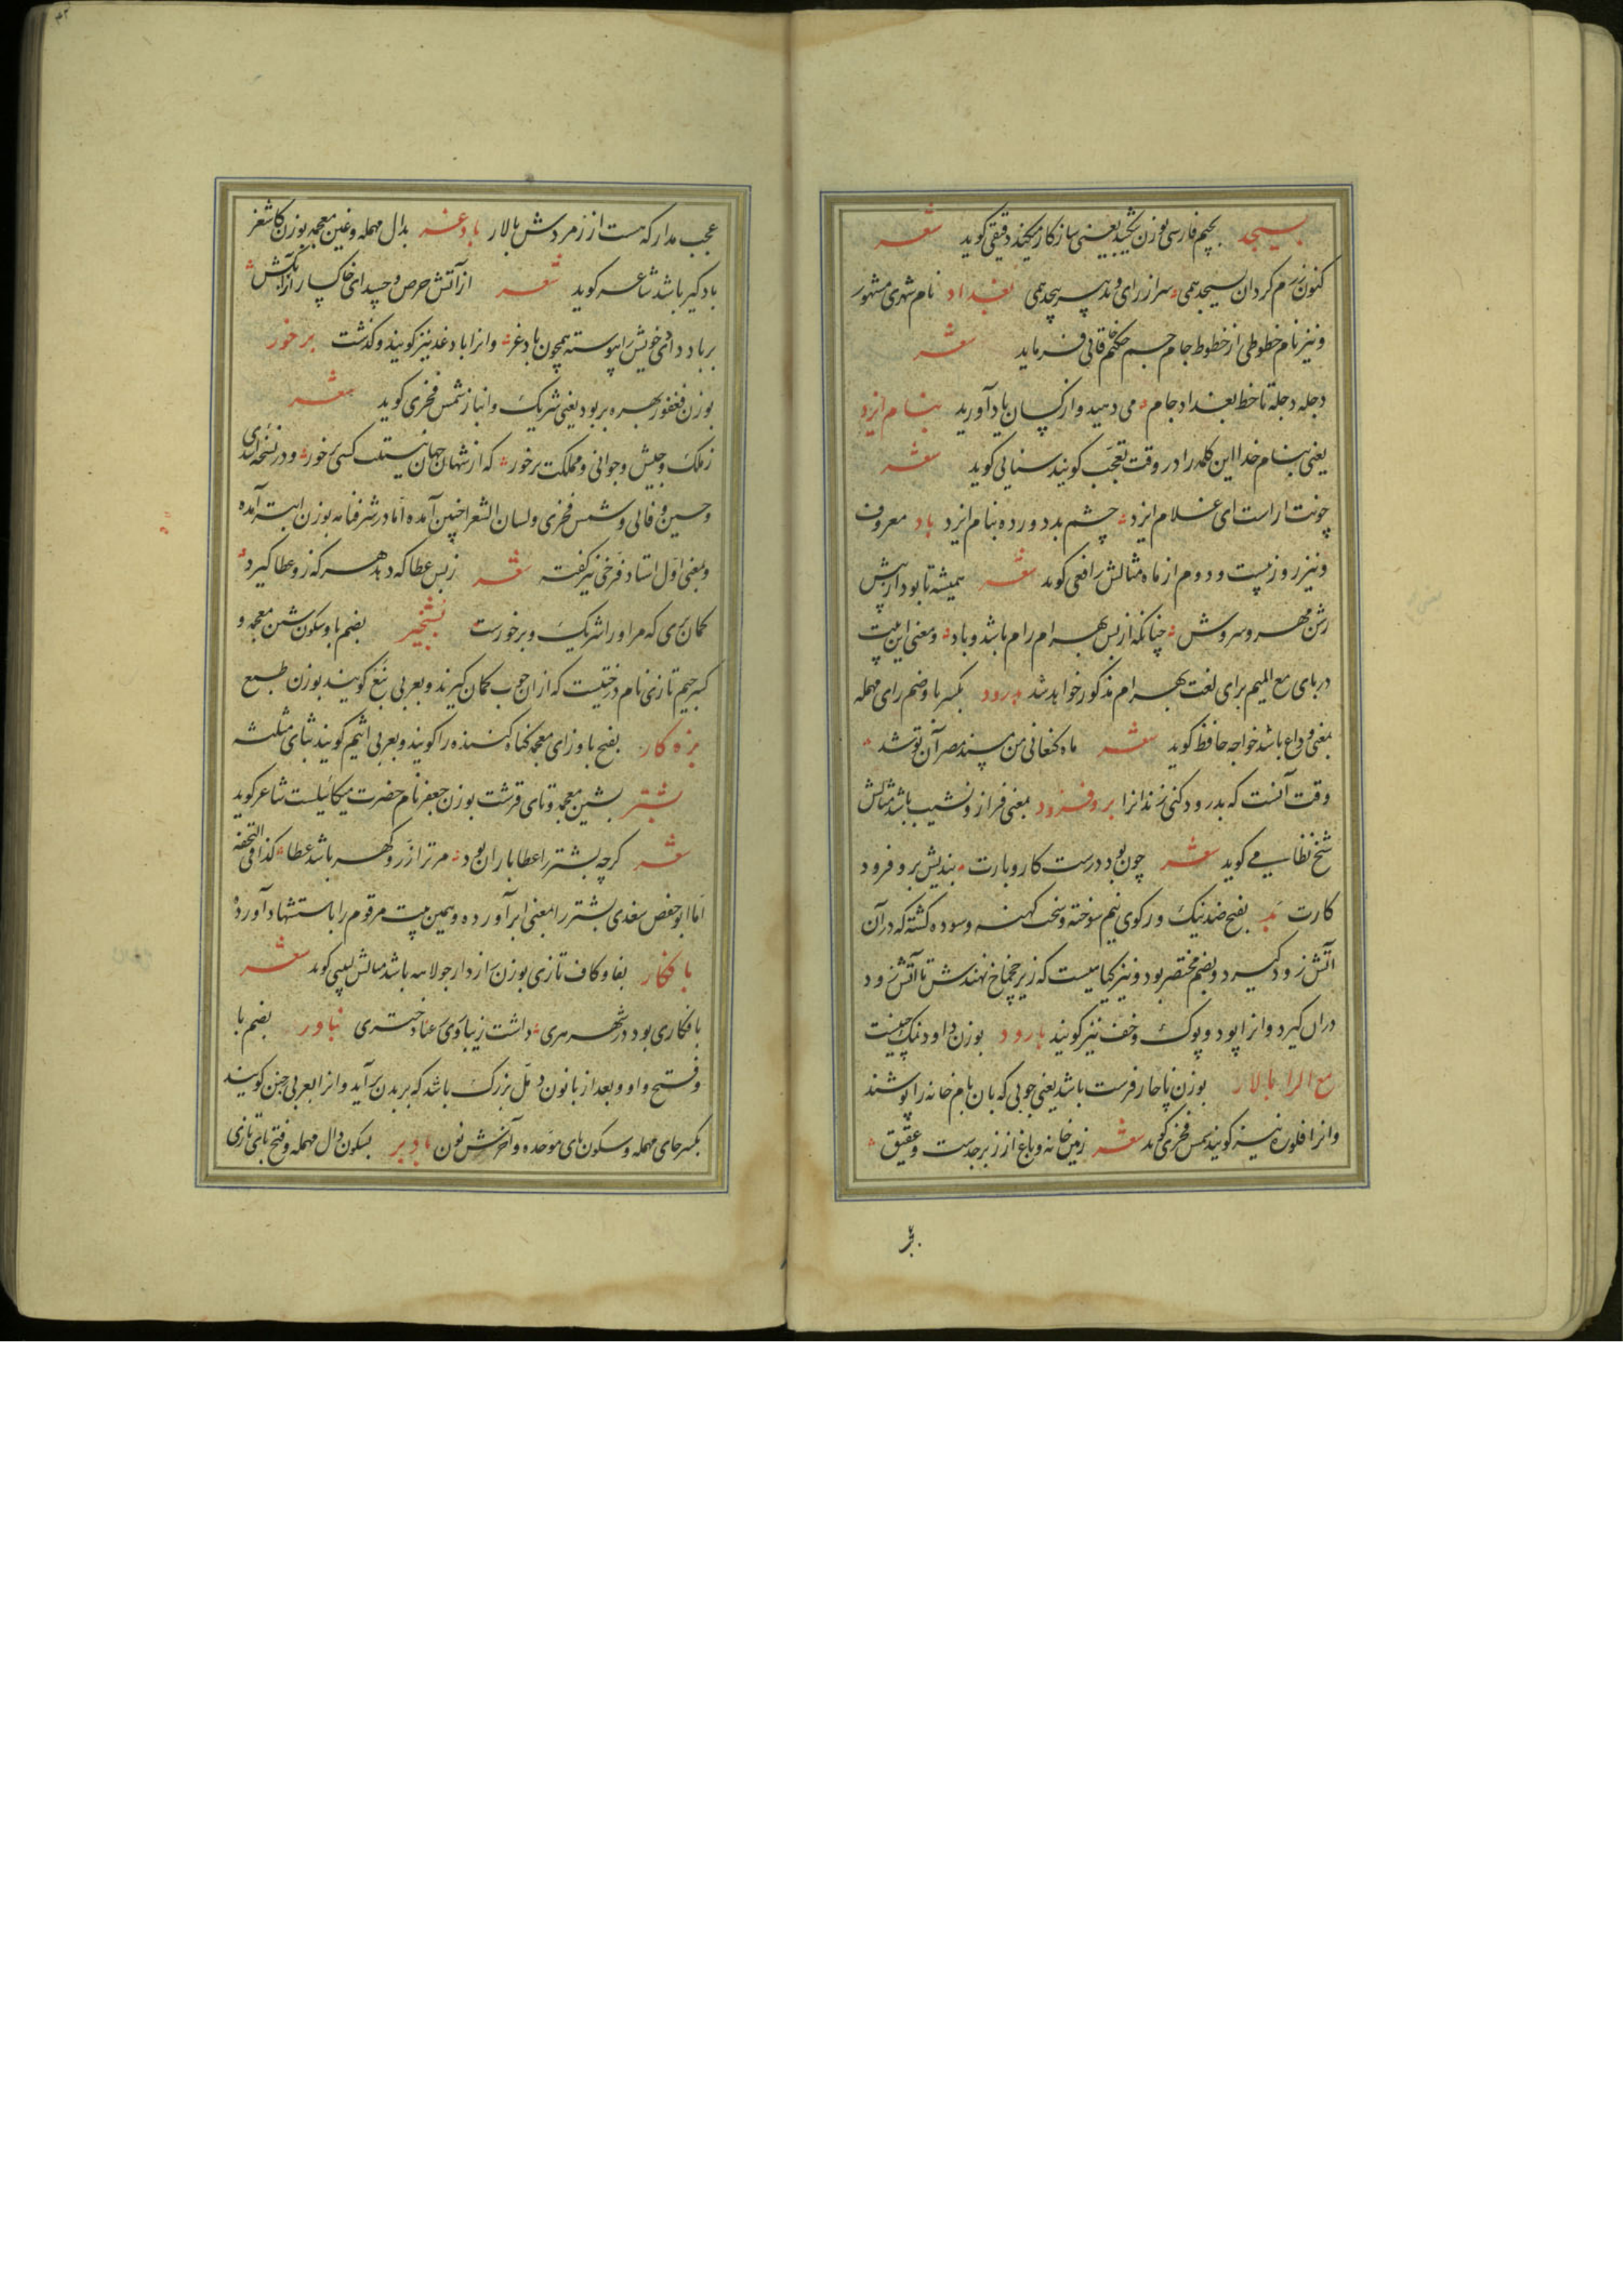 بسیجد بجیم فارسی بوزن نگنجد یعنی سازکار میکند دقیقی کوید شعر
کنون رزم کردان بسیجد همی سر از رای و تدبیر پیچد همی بغداد نام شهری مشهور
و نیز نام خطوطی از خطوط جام جم حکیم خاقانی فرماید شعر
دجله دجله تا خط بغداد جام می دهید و از کسان یاد آورید بنام ایزد
یعنی بنام خدا این کلمه را در وقت تعجب کویند سنایی کوید شعر
چونت اراست ای غلام ایزد چشم بد دور ده بنام ایزد باد معروف
و نیز روز بیست و دوم از ماه مثالش رافعی کوید شعر همیشه تا بود از پیش
رشن مهر و سروش چنانکه از پس بهرام رام باشد و باد و معنی این بیت
در بای مع المیم برای لغت بهرام مذکور خواهد شد بدرود بکسر با و ضم رای مهمله
بمعنی وداع باشد خواجه حافظ کوید شعر ماه کنعانی من مسند مصر آن تو شد
وقت آنست که بدرود کنی زندانرا بر و فرود بمعنی فراز و نشیب باشد مثالش
شیخ نظامی کوید شعر چون بود درست کار و بارت بندیش بر و فرود
کارت بد بفتح ضد نیک و رکوی نیم سوخته و سخت کهنه و سوده کشته که در آن
آتش زود کیرد و بضم مختصر بود و نیز کیاهیست که زیر چخماخ نهندش تا آتش زود
دران کیرد و انرا پود و پوک و خف نیز کویند بارود بوزن داود نمک چینیست
مع الرا بالار بوزن پاچار فرست باشد یعنی چوبی که بان بام خانه را پوشند
و انرا فلوره نیز کویند شمس فخری کوید شعر زمین خانه و باغ از زبرجدست و عقیق
عجب مدار که هست از زمردش بالار بادغر بدال مهمله و غین معجمه بوزن کاشغر
بادکیر باشد شاعر کوید شعر از آتش حرص و حسد ای خاکسار
بر باد دادی خویش را پیوسته همچون بادغر و انرا بادغد نیز کویند و کذشت برخور
بوزن فغفور بهره بر بود یعنی شریک و انباز شمس فخری کوید شعر
ز ملک و جیش و جوانی و مملکت برخور که از شهان جهان نیستت کسی برخور و در نسخه
و حسین وفائی و شمس فخری و لسان الشعرا چنین آمده اما در شرفنامه بوزن ابتر آمده
و معنی اول استاد فرخی نیز کفته شعر ز بس عطا که دهد هر که زو عطا کیرد
کمان بری که مر او را شریک و برخورست بشخیر بضم با و سکون شین معجمه و
کسر جیم تازی نام درختیست که ازان چوب کمان کیرند و بعربی نبع کویند بوزن طبع
بزه کار بفتح با و زای معجمه کناه کننده را کویند و بعربی اثیم کویند بثای مثلثه
بشتر بشین معجمه و تای قرشت بوزن جعفر نام حضرت میکائیلست شاعر کوید
شعر کرچه بشتر را عطا باران بود مر ترا زر و کهر باشد عطا کذا فی التحفه
اما ابو حفص سغدی بشتر را بمعنی ابر آورده و همین بیت مرقوم را باستشهاد آورده
بافکار بفا و کاف تازی بوزن رازدار جولاهه باشد مثالش لبیبی کوید شعر
بافکاری بود در شهر هری داشت زیبا روی رعنا دختری بناور بضم با
و فتح واو و بعد از با نون دمل بزرک باشد که بر بدن برآید و انرا بعربی حبن کویند
بکسر حای مهمله و سکون بای موحده و آخرش نون بادبر بسکون دال مهمله و فتح بای تازی